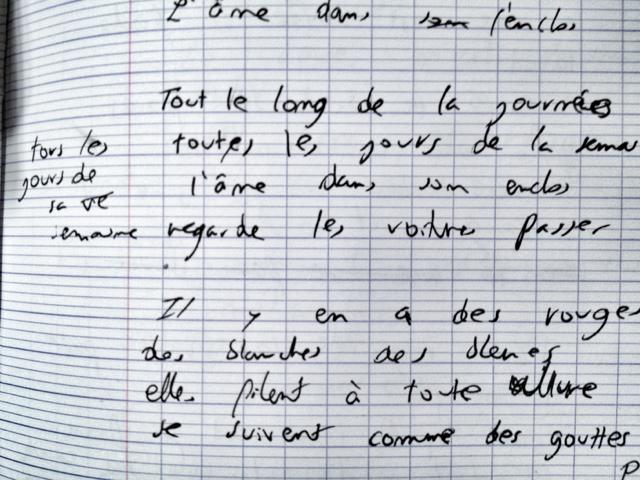 L'âne dans l'enclos
Tout le long de la journées
toutes les jours de la semai
l'âne dans son enclos
regarde les voitures passer
tors les
jours de
sa ve
semaine
Il y en a des rouges
des blanches des bleues
elles filent à toute allure
se suivent comme des gouttes
p